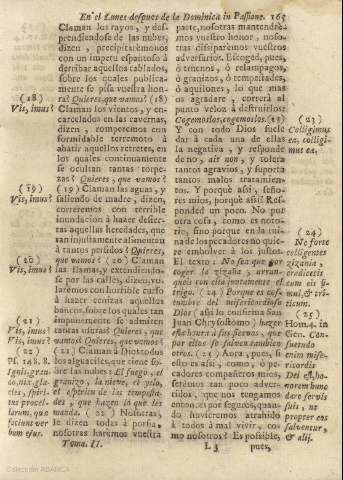 En el Lunes despues de la Dominica in Passione. 165
Claman los rayos, y des-
prendiendose de las nubes,
dizen, precipitarèmonos
con un impetu espantoso à
derribar aquellos cablados,
sobre los quales publica-
mente se pisa vuestra hon-
ra: Quieres, que vamos? (18)
Claman los vientos, y en-
carcelados en las cavernas,
dizen, romperemos con
formidable terremoto à
abatir aquellos retretes, en
los quales continuamente
se ocultan tantas torpe-
zas: Quieres, que vamos?
(19) Claman las aguas, y
saliendo de madre, dizen,
correremos con terrible
inundacion à hazer desier-
tas aquellas heredades, que
tan injustamente alimentan
à tantos perdidos: Quieres,
que vamos? (20) Claman
las llamas, y extendiendo-
se por las calles, dizen, vo-
larèmos con horrible furia
à hazer cenizas aquellos
bancos, sobre los quales tan
impunemente se admiten
tantas usuras: Quieres, que
vamos? Quieres, que vamos?
(21) Claman
los alguaciles, que tiene so-
bre las nubes: El fuego, el
granizo, la nieve, el yelo,
el espiritu de las tempesta-
des, que hazen lo que les
manda. (22) Nosotras,
le dizen todas à porfia,
nosotras harèmos vuestra
(18)
Vis, imus?
(19)
Vis, imus?
(20)
Vis, imus?
(21)
Vis, imus?
Vis, imus?
(22)
Ps. 148. 8.
Ignis, gran-
do, nix, gla-
cies, spiri-
tus procel-
larum, quæ
faciunt ver-
bum ejus.
Tomo II.
parte, nosotras mantendrè-
mos vuestro honor, noso-
tras dissiparèmos vuestros
adversarios. Escoged, pues,
ò truenos, ò relampagos,
ò granizos, ò tempestades,
ò aquilones, lo que mas
os agradare, correrà al
punto veloz à destruirlos:
Cogemoslos, cogemoslos. (23)
Y con todo Dios suele
dar à cada una de ellas
la negativa, y responde
de no, ait non, y tolera
tantos agravios, y suporta
tantos malos tratamien-
tos. Y porquè assi, seño-
res mios, porquè assi? Res-
ponded un poco. No por
otra cosa, como es noto-
rio, sino porque en la rui-
na de los pecadores no quie-
re embolver à los justos.
El texto: No sea que por
coger la zizaña, arran-
queis con ella juntamente el
trigo. (24) Porque es cos-
tumbre del misericordioso
Dios (assi lo confirma San
Juan Chrysostomo) hazer
esta honra à sus siervos, que
por ellos se salven tambien
otros. (25) Aora, pues, si
esto es assi, como, ò pe-
cadores compañeros mios,
seremos tan poco adver-
tidos, que nos tengamos
entonces por seguros, quan-
do huvieremos atrahido
à todos à mal vivir, co-
mo nosotros? Es possible,
(23)
Colligimus
ea, colligi-
mus ea.
(24)
Ne forte
colligentes
zizania,
eradicetis
cum eis si-
mul, & tri-
ticum.
(25)
Hom. 4. in
Gen. Con-
suetudo
enim mise-
ricordis
Dei est, ho-
norem hunc
dare servis
suis, ut
propter eos
salventur,
& alij.
L 3
pues,
Colección ABANCA